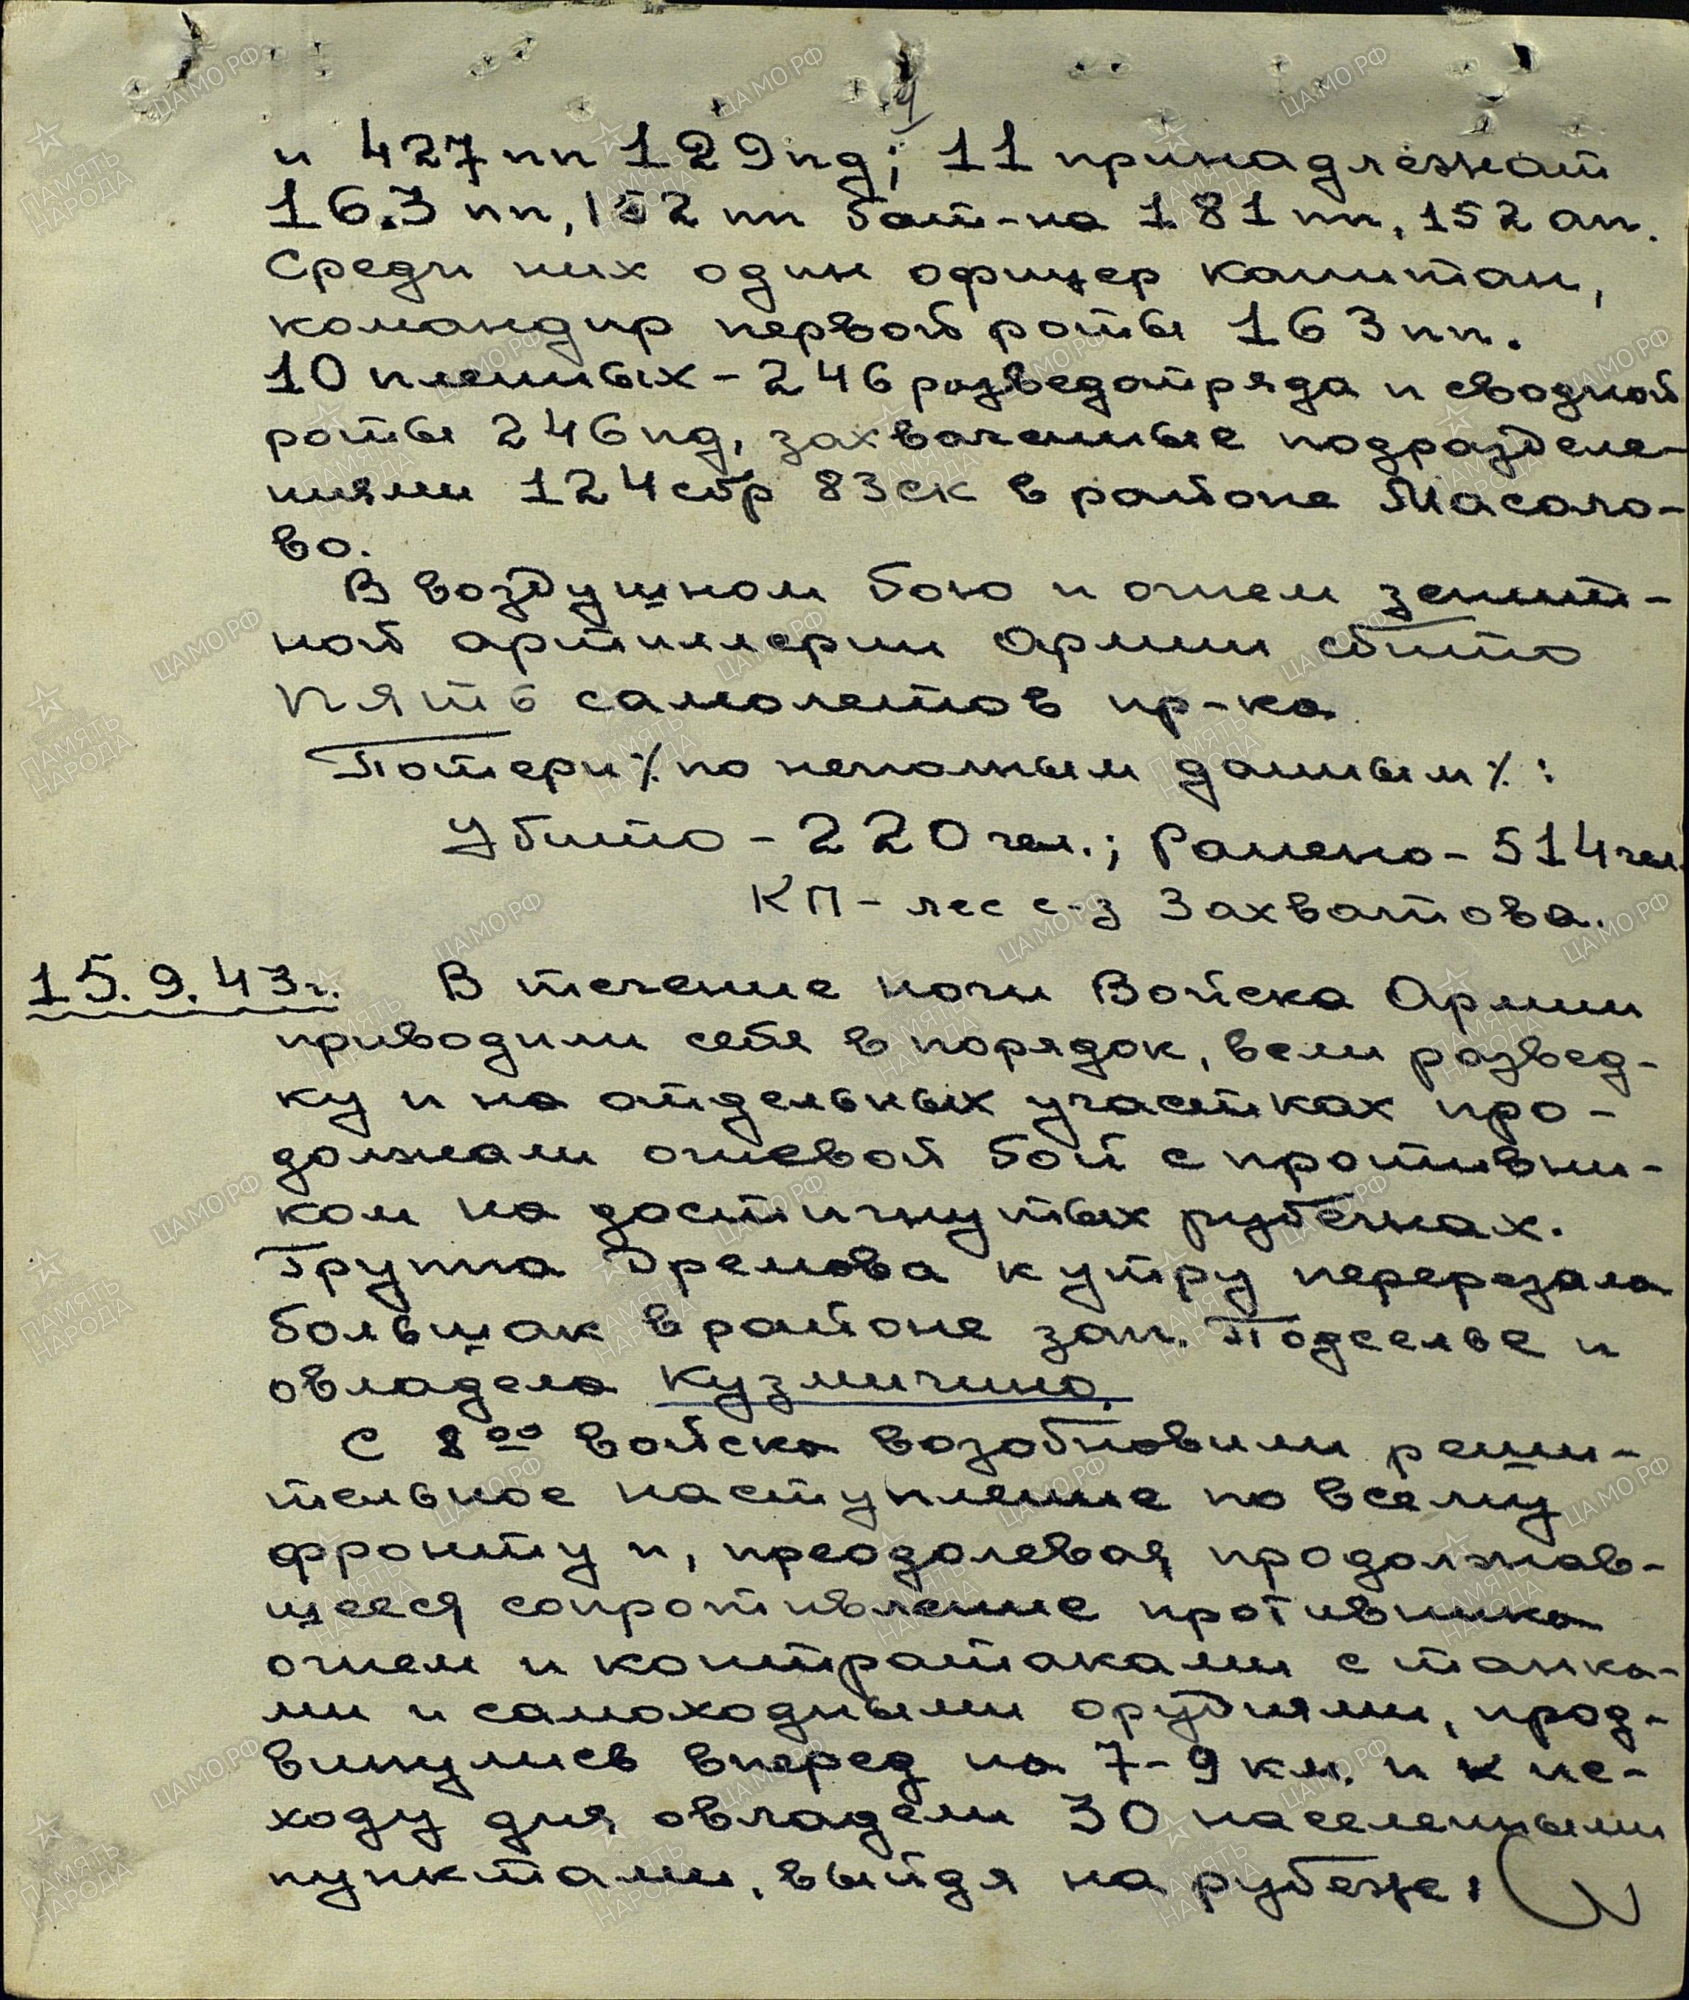 и 427 пп 129 пд; 11 принадлежат
163 пп, 152 пп бат-на 181 пп, 152 ап.
Среди них один офицер капитан,
командир первой роты 163 пп.
10 пленных - 246 разведотряда и сводной
роты 246 пд, захваченные подразделе-
ниями 124 сбр 83 ск в районе Масало-
во.
В воздушном бою и огнем зенит-
ной артиллерии Армии сбито
пять самолетов пр-ка
Потери % по неполным данным %:
Убито - 220 чел.; Ранено - 514 чел.
КП - лес с-з Захватова.
15.9.43г. В течение ночи Войска Армии
приводили себя в порядок, вели развед-
ку и на отдельных участках про-
должали огневой бой с противни-
ком на достигнутых рубежах.
Группа Дремова к утру перерезала
большак в районе зап. Подселье и
овладела Кузмичино.
С 8 00 войска возобновили реши-
тельное наступление по всему
фронту и, преодолевая продолжав-
шееся сопротивление противника
огнем и контратаками с танка-
ми и самоходными орудиями, прод-
винулись вперед на 7-9 км. и к ис-
ходу дня овладели 30 населенными
пунктами, выйдя на рубеже: